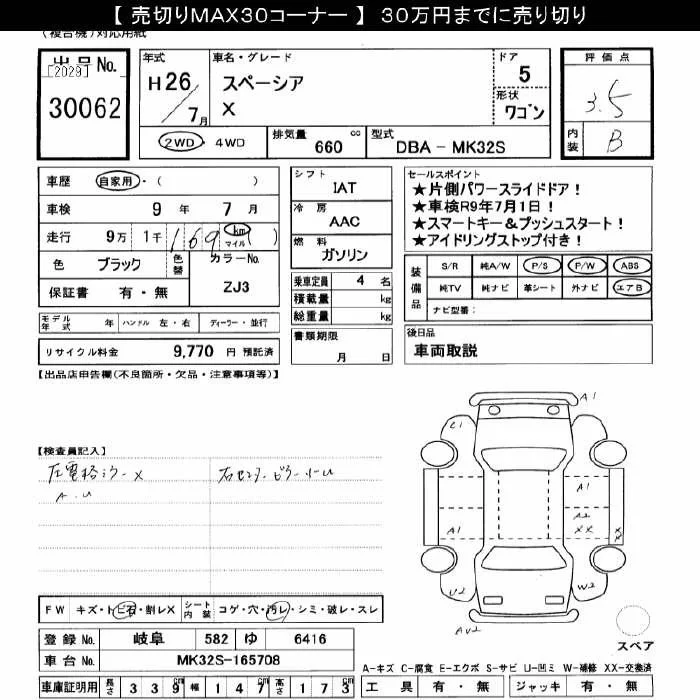 【 売切りMAX30コーナー 】 30万円までに売り切り
(複合機)対応用紙
出品No.
[2029]
30062
年式
H26/7月
車名・グレード
スペーシア
X
ドア
5
形状
ワゴン
評価点
3.5
内装
B
2WD ・ 4WD
排気量 660 cc
型式 DBA － MK32S
車歴 自家用・( )
車検 9 年 7 月
走行 9万 1千 169 km マイル ( )
色 ブラック 色替 カラーNo. ZJ3
保証書 有 ・ 無
モデル年式 年 ハンドル 左・右 ディーラー・並行
リサイクル料金 9,770 円 預託済
シフト
IAT
冷房
AAC
燃料
ガソリン
乗車定員 4 名
積載量 kg
総重量 kg
書類期限
月 日
セールスポイント
★片側パワースライドドア！
★車検R9年7月1日！
★スマートキー＆プッシュスタート！
★アイドリングストップ付き！
装備品
S/R 純A/W P/S P/W ABS
純TV 純ナビ 革シート 外ナビ エアB
ナビ型番：
後日品
車両取説
【出品店申告欄(不良箇所・欠品・注意事項等)】
【検査員記入】
左電格ミラーX
A.U
右センターピラー小U
A1
C1
A1
A2
XX
XX
A1
U2
W2
AU2
スペア
FW キズ・トビ石・割レX シート内装 コゲ・穴・汚レ・シミ・破レ・スレ
登録No. 岐阜 582 ゆ 6416
車台No. MK32S-165708
車庫証明用 長さ 339 cm 幅 147 cm 高さ 173 cm
A-キズ C-腐食 E-エクボ S-サビ U-凹ミ W-補修 XX-交換済
工具 有 ・ 無 ジャッキ 有 ・ 無